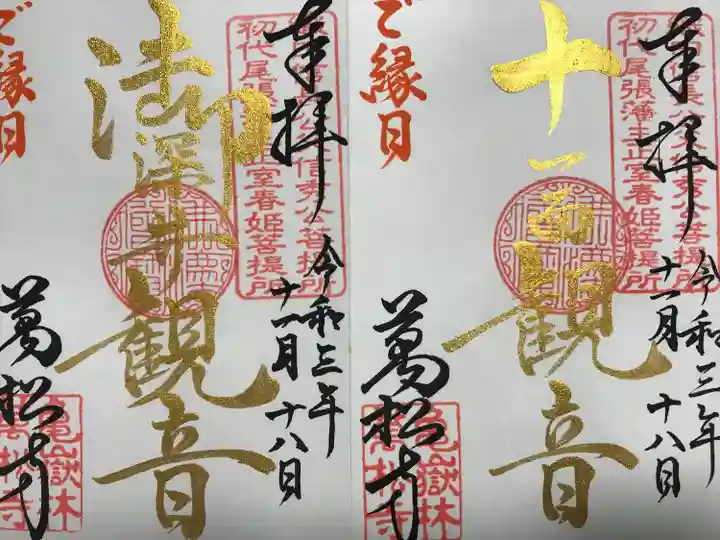 奉拝
令和三年
十一月十八日
初代尾張藩主正室春姫菩提所
御深井観音
ご縁日
萬松寺
亀嶽林
萬松寺
奉拝
令和三年
十一月十八日
初代尾張藩主正室春姫菩提所
十一面観音
ご縁日
萬松寺
亀嶽林
萬松寺